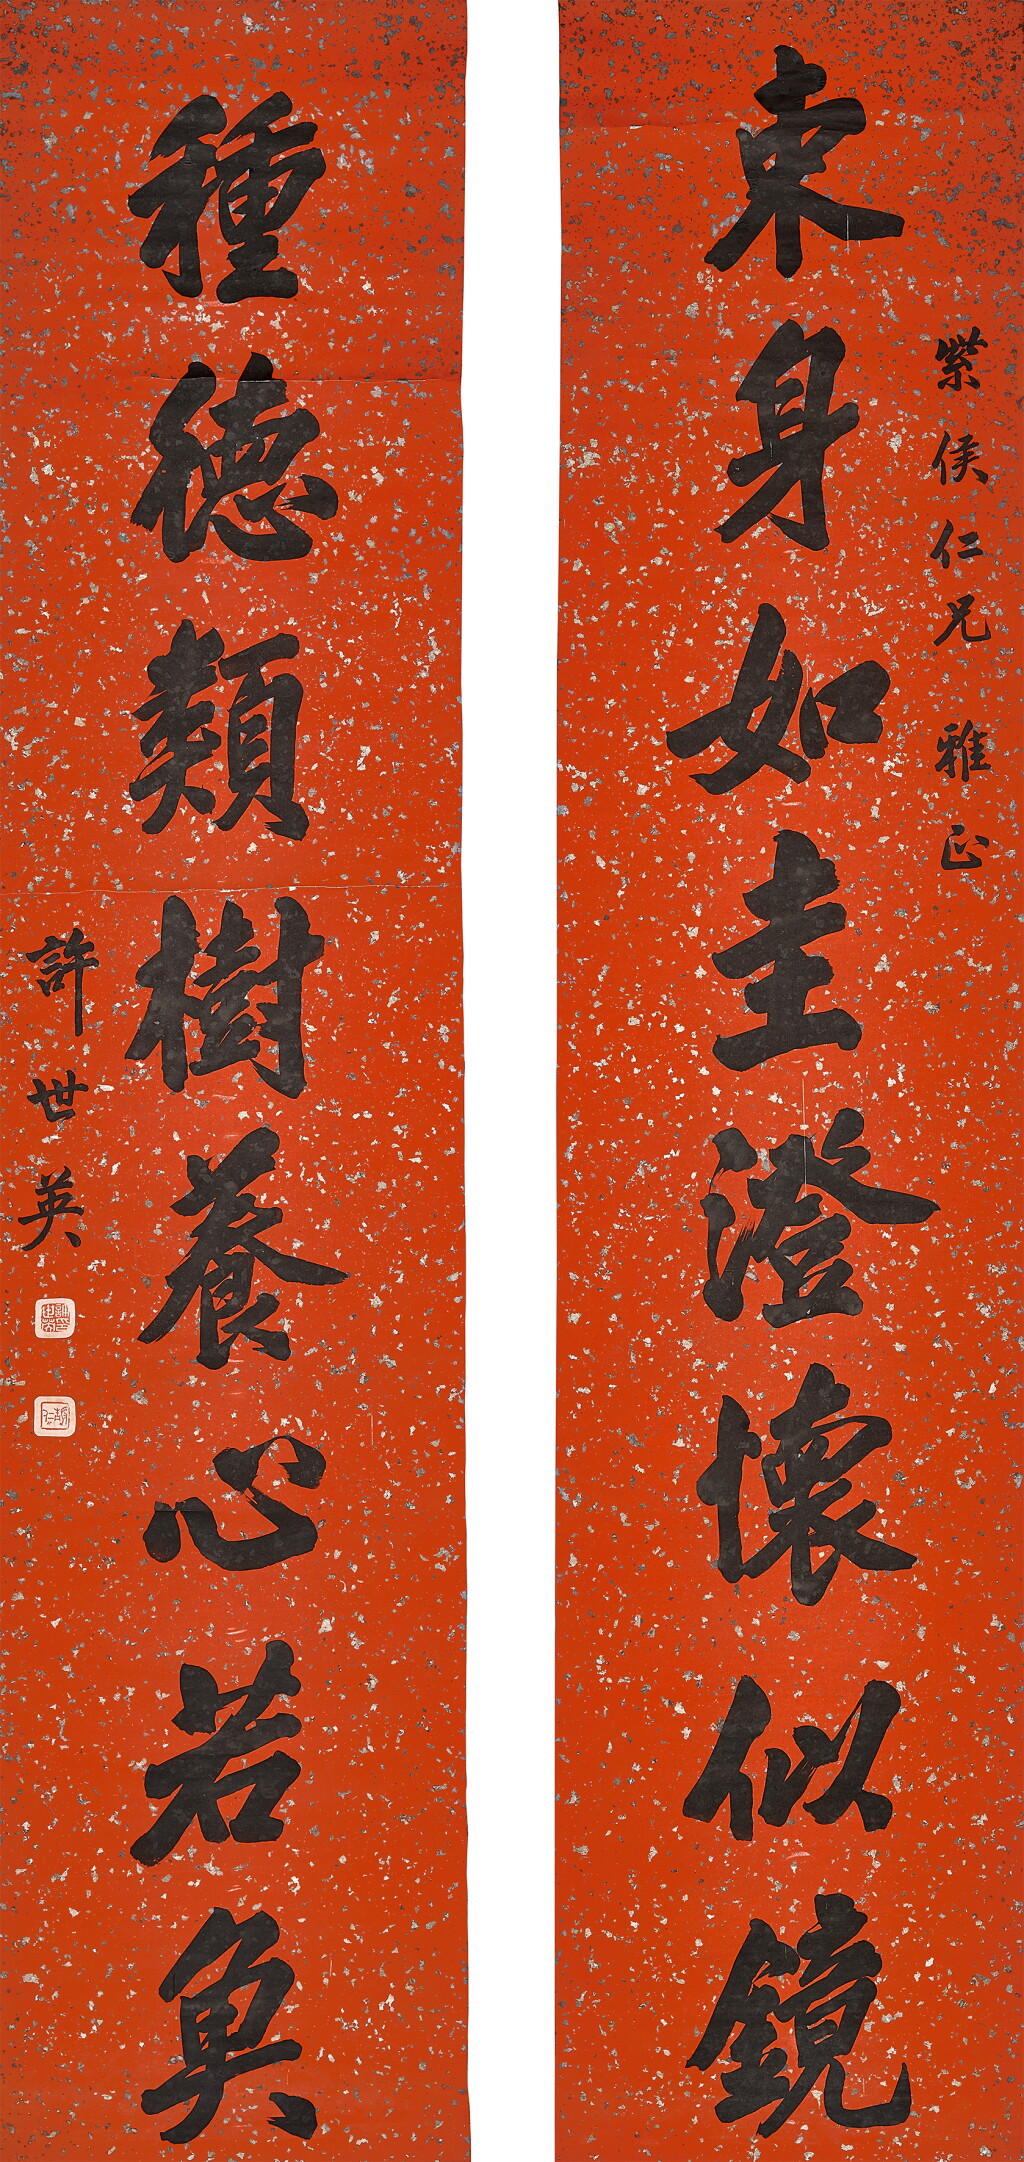 紫侯仁兄雅正
束身如圭澄懷似鏡
種德類樹養心若魚
許世英